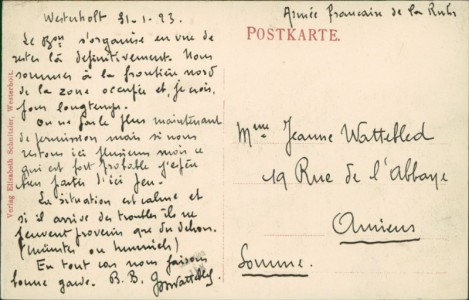 Westerholt 31-1-23.
Armée française de la Ruhr
POSTKARTE.
Le Bon s'organise en vue de
rester là définitivement. Nous
sommes à la frontière nord
de la zone occupée et, je crois,
pour longtemps.
On ne parle plus maintenant
de permission mais si nous
restons ici plusieurs mois ce
qui est fort probable j'espère
bien partir d'ici
La situation est calme et
si il arrive des troubles ils ne
peuvent provenir que du dehors.
(Münster ou
En tout cas nous faisons
bonne garde. B. B.
Mme Jeanne Wattebled
19 Rue de l'Abbaye
Amiens
Somme.
Verlag Elisabeth Schnitzler, Westerholt.